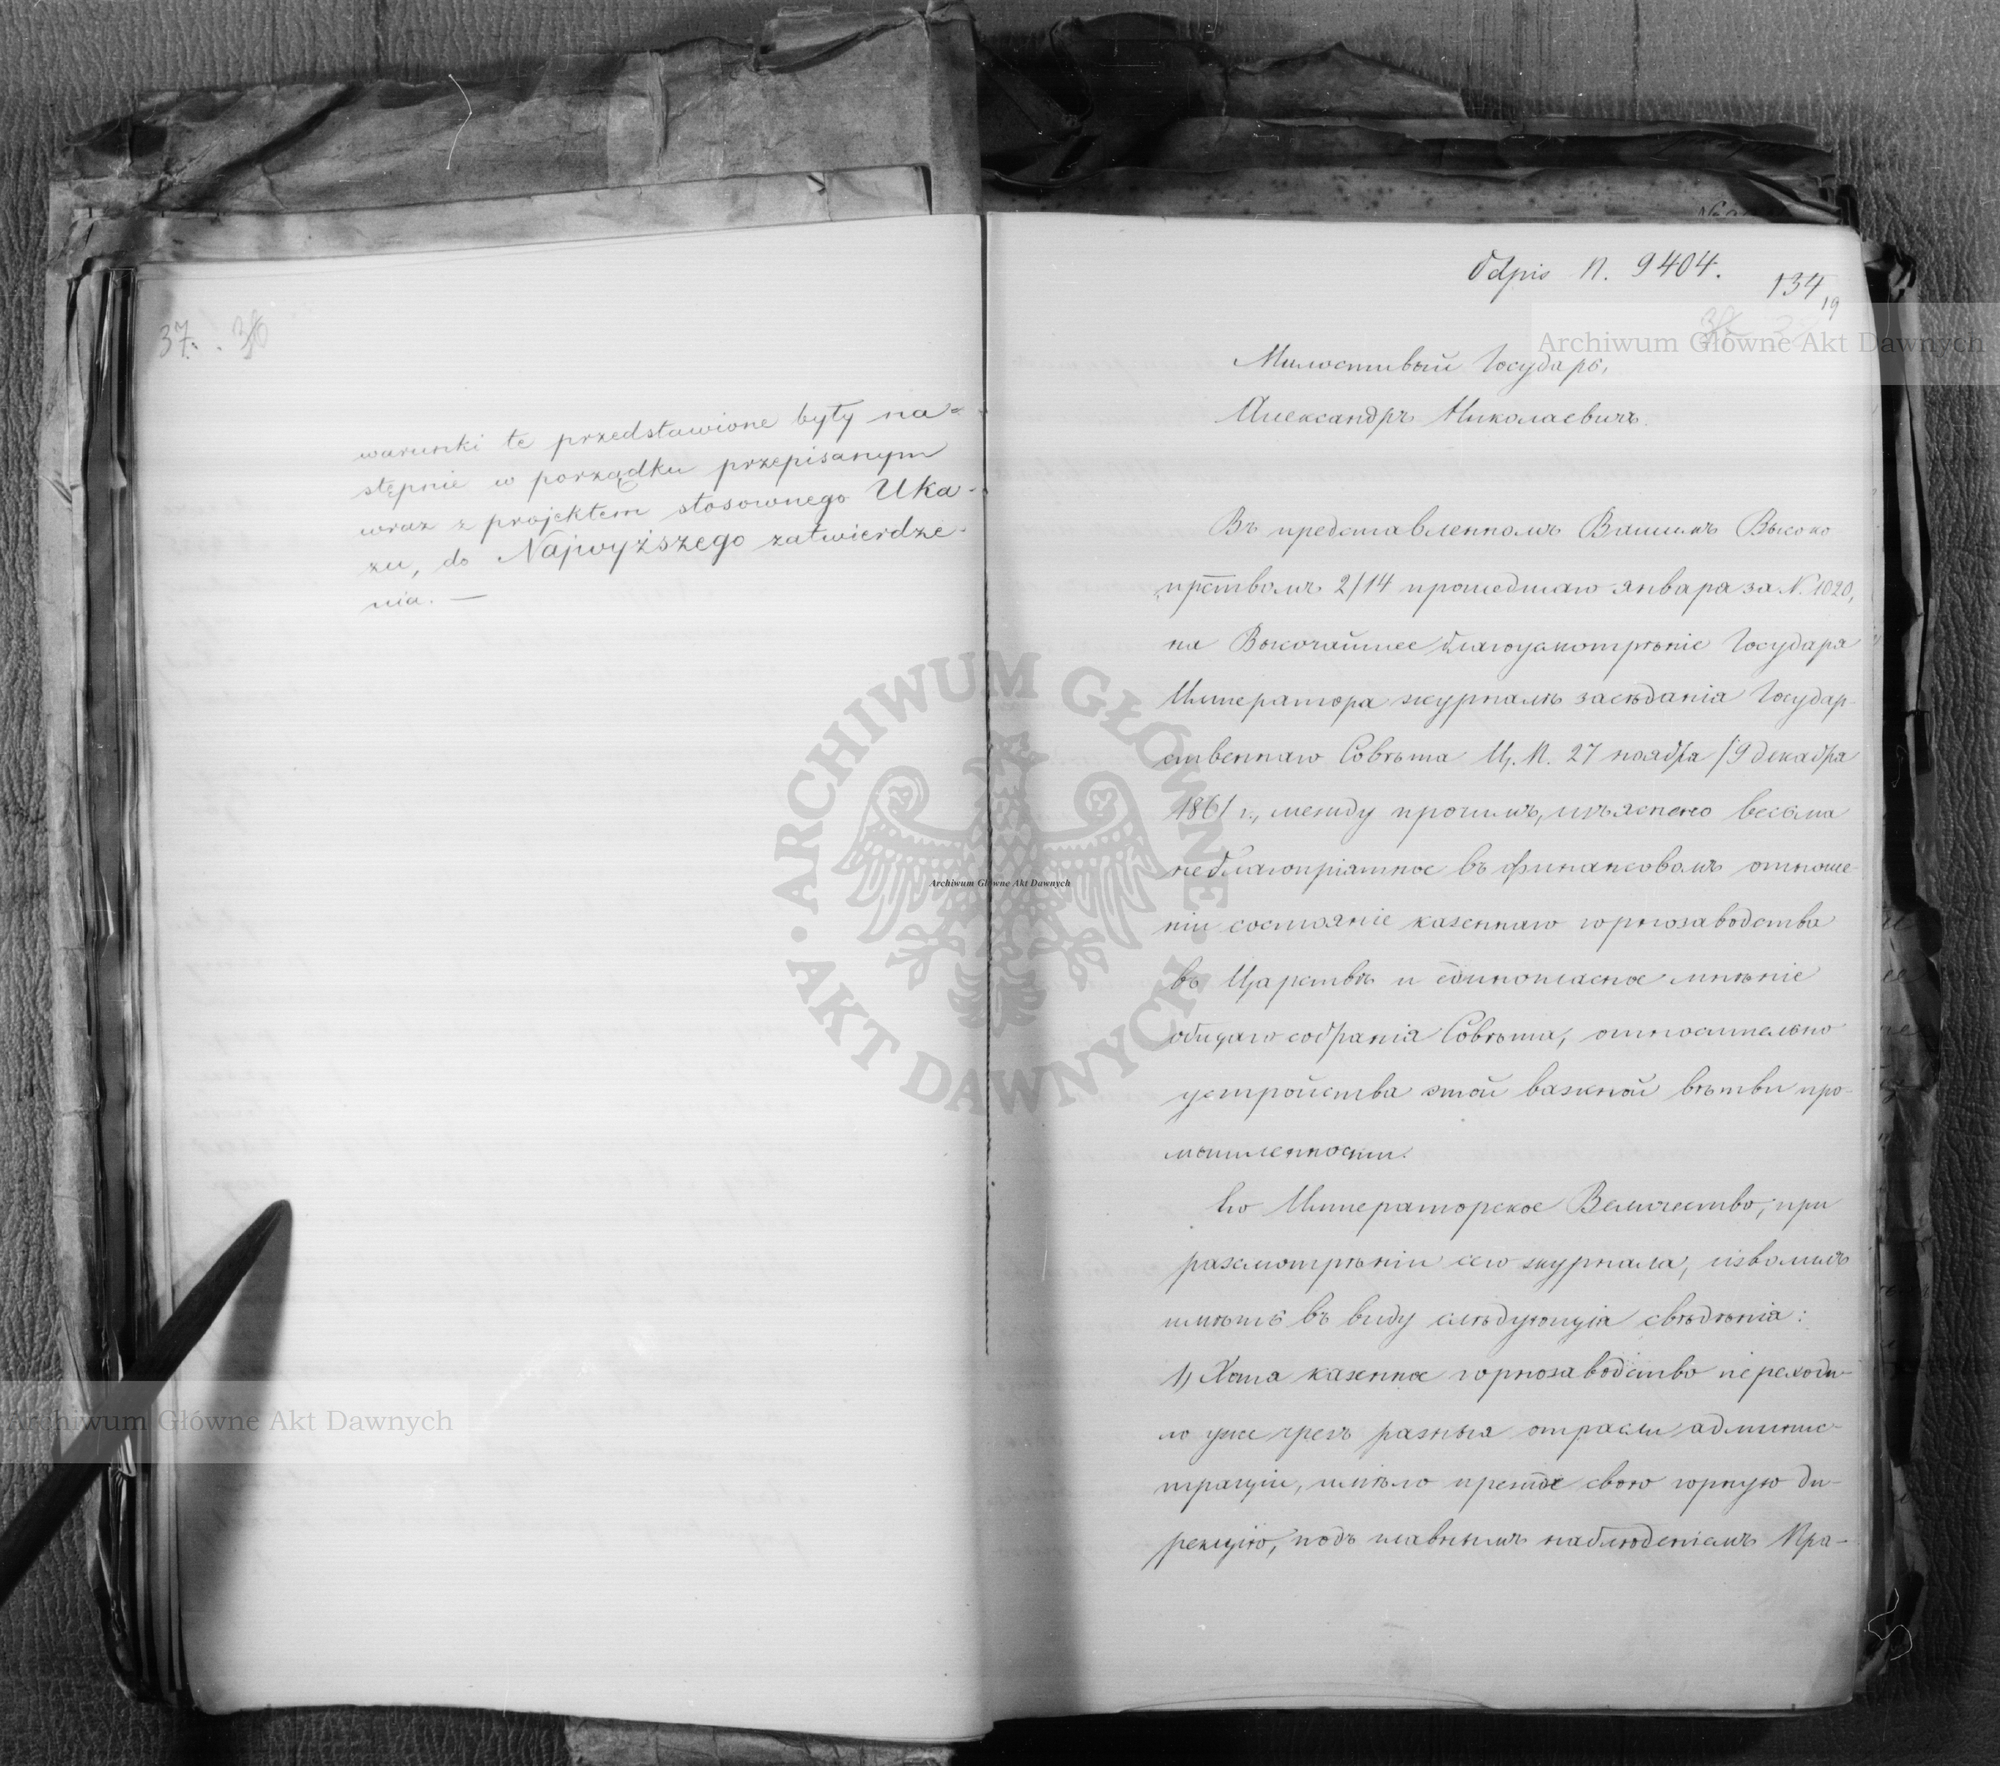 37. 36
warunki te przedstawione były na=
stępnie w porządku przepisanym
wraz z projektem stosownego Uka-
zu, do Najwyższego zatwierdze-
nia. —
Odpis N. 9404.
134
19
Милостивый Государь,
Александръ Николаевичъ.
Въ представленномъ Вашимъ Высоко
прствомъ 2/14 прошедшаго января за N. 1020,
на Высочайшее благоусмотрѣніе Государя
Императора журналѣ засѣданія Государ-
ственнаго Совѣта Ц. П. 27 ноября /9 декабря
1861 г., между прочимъ, изъяснено весьма
неблагопріятное въ финансовомъ отноше-
ніи состояніе казеннаго горнозаводства
въ Царствѣ и единогласное мнѣніе
общаго собранія Совѣта, относительно
устройства этой важной вѣтви про-
мышленности.
Его Императорское Величество, при
разсмотрѣніи сего журнала, изволилъ
имѣть въ виду слѣдующія свѣдѣнія:
1) Хотя казенное горнозаводство переходи-
ло уже чрезъ разныя отрасли админис-
траціи, имѣло прежде свою горную ди-
рекцію, подъ главнымъ наблюденіемъ Пра-
Archiwum Główne Akt Dawnych
Archiwum Główne Akt Dawnych
Archiwum Główne Akt Dawnych
ARCHIWUM GŁÓWNE AKT DAWNYCH